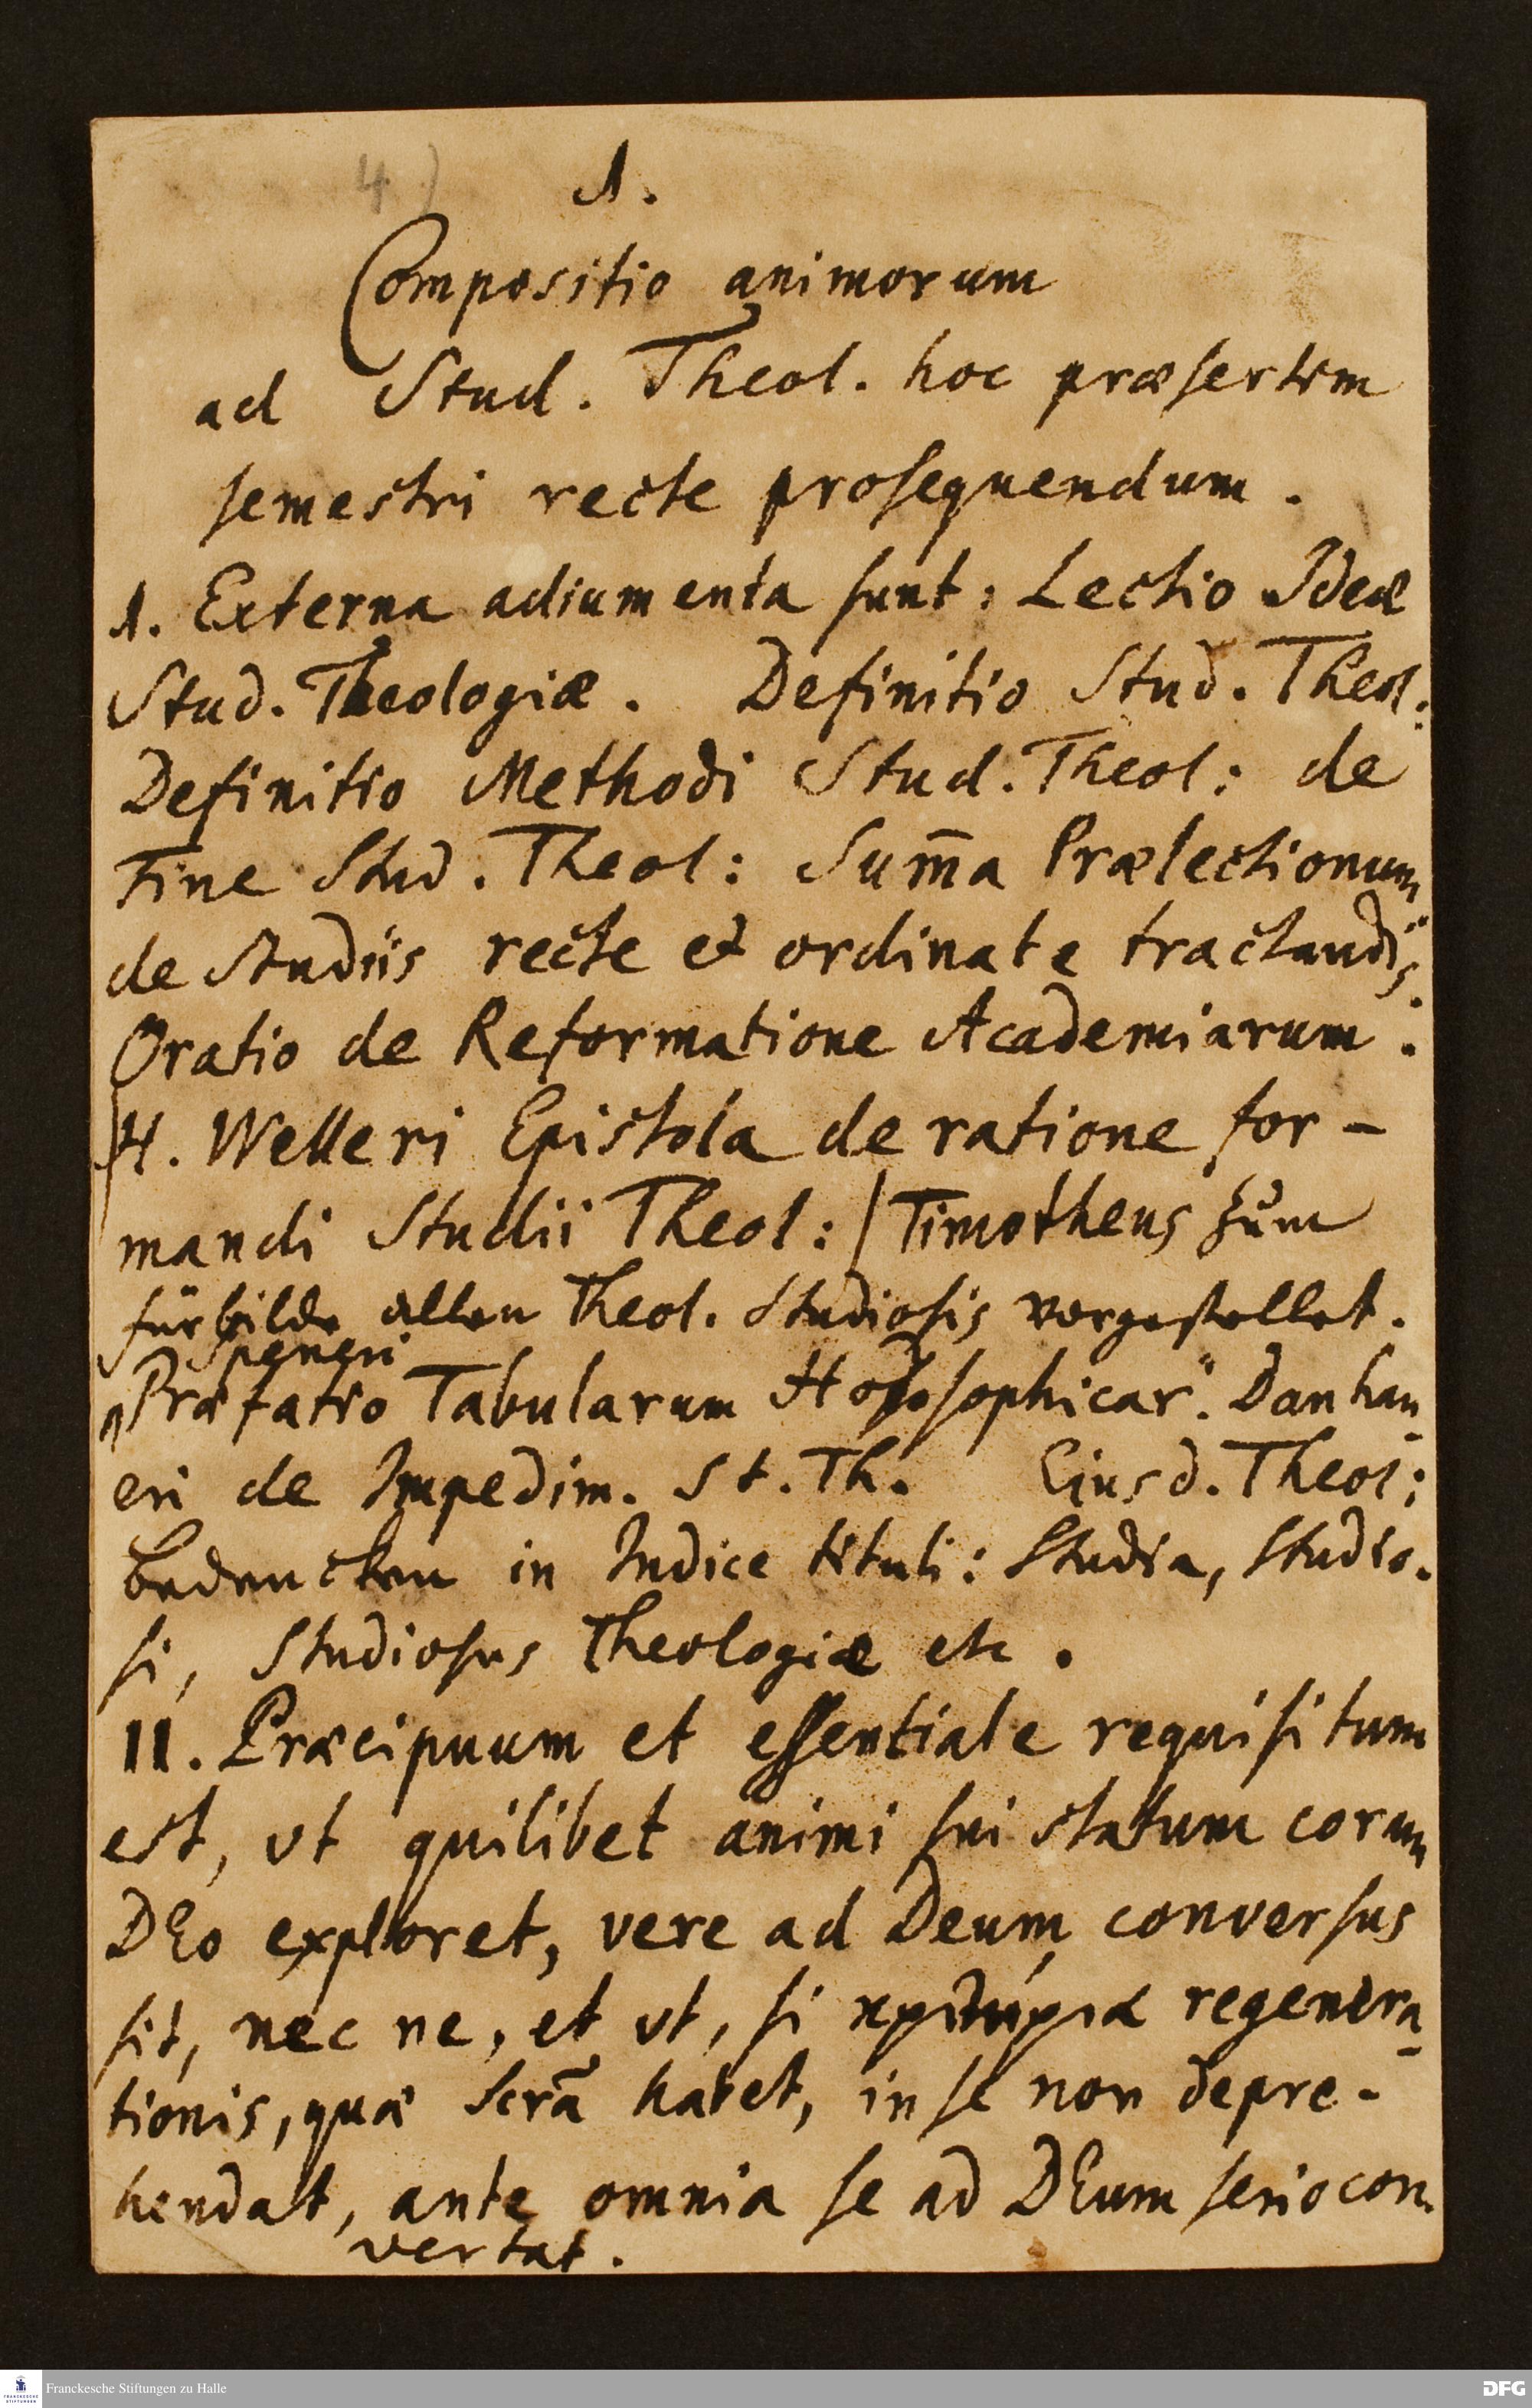 4.)
1.
Compositio animorum
ad Stud. Theol. hoc præsertim
semestri recte prosequendum.
1. Externa adiumenta sunt: Lectio Ideæ
Stud. Theologiæ. Definitio Stud. Theol:
Definitio Methodi Stud. Theol: de
Fine Stud. Theol: Sum̄a Prælectionum
de Studiis recte et ordinate tractandis.
Oratio de Reformatione Academiarum.
H. Welleri Epistola de ratione for-
mandi Studii Theol: / Timotheus zum
fürbilde allen Theol. Studiosis vorgestellet.
Speneri
Præfatio Tabularum Hodosophicar. Danhau-
eri de Impedim. St. Th. Eiusd. Theol:
bedencken in Indice tituli: Studia, Studio-
si, Studiosus Theologiæ etc.
II. Præcipuum et essentiale requisitum
est, vt quilibet animi sui statum coram
DEo exploret, vere ad Deum conversus
sit, nec ne, et vt, si κριτήρια regenera-
tionis, quæ Scrā habet, in se non depre-
hendat, ante omnia se ad DEum serio con-
vertat.
Franckesche Stiftungen zu Halle
FRANCKESCHE STIFTUNGEN
DFG